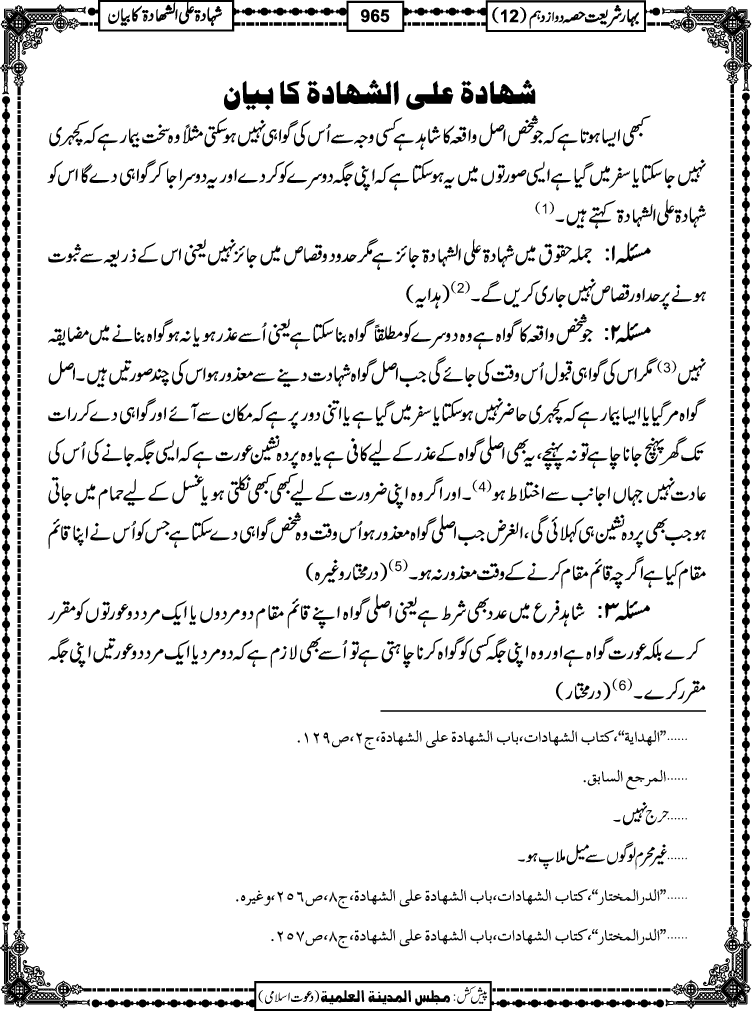 بہارِ شریعت حصہ دوازدہم (12)
965
شہادۃ علی الشہادۃ کا بیان
شہادۃ علی الشہادۃ کا بیان
کبھی ایسا ہوتا ہے کہ جو شخص اصل واقعہ کا شاہد ہے کسی وجہ سے اُس کی گواہی نہیں ہوسکتی مثلاً وہ سخت بیمار ہے کہ کچہری
نہیں جاسکتا یا سفر میں گیا ہے ایسی صورتوں میں یہ ہوسکتا ہے کہ اپنی جگہ دوسرے کو کر دے اور یہ دوسرا جا کر گواہی دے گا اس کو
شہادۃ علی الشہادۃ کہتے ہیں۔(1)
مسئلہ ۱: جملہ حقوق میں شہادۃ علی الشہادۃ جائز ہے مگر حدود و قصاص میں جائز نہیں یعنی اس کے ذریعہ سے ثبوت
ہونے پر حد اور قصاص نہیں جاری کریں گے۔(2) (ہدایہ)
مسئلہ ۲: جو شخص واقعہ کا گواہ ہے وہ دوسرے کو مطلقاً گواہ بنا سکتا ہے یعنی اُسے عذر ہو یا نہ ہو گواہ بنانے میں مضایقہ
نہیں(3) مگر اس کی گواہی قبول اُس وقت کی جائے گی جب اصل گواہ شہادت دینے سے معذور ہو اس کی چند صورتیں ہیں۔ اصل
گواہ مرگیا یا ایسا بیمار ہے کہ کچہری حاضر نہیں ہوسکتا یا سفر میں گیا ہے یا اتنی دور پر ہے کہ مکان سے آئے اور گواہی دے کر رات
تک گھر پہنچ جانا چاہے تو نہ پہنچے، یہ بھی اصلی گواہ کے عذر کے لیے کافی ہے یا وہ پردہ نشین عورت ہے کہ ایسی جگہ جانے کی اُس کی
عادت نہیں جہاں اجانب سے اختلاط ہو(4)۔ اور اگر وہ اپنی ضرورت کے لیے کبھی کبھی نکلتی ہو یا غسل کے لیے حمام میں جاتی
ہو جب بھی پردہ نشین ہی کہلائی گی، الغرض جب اصلی گواہ معذور ہو اُس وقت وہ شخص گواہی دے سکتا ہے جس کو اُس نے اپنا قائم
مقام کیا ہے اگرچہ قائم مقام کرنے کے وقت معذور نہ ہو۔(5) (درمختار وغیرہ)
مسئلہ ۳: شاہد فرع میں عدد بھی شرط ہے یعنی اصلی گواہ اپنے قائم مقام دو مردوں یا ایک مرد دو عورتوں کو مقرر
کرے بلکہ عورت گواہ ہے اور وہ اپنی جگہ کسی کو گواہ کرنا چاہتی ہے تو اُسے بھی لازم ہے کہ دو مرد یا ایک مرد دو عورتیں اپنی جگہ
مقرر کرے۔(6) (درمختار)
......”الھدایۃ“، کتاب الشھادات، باب الشھادۃ علی الشھادۃ، ج۲، ص۱۲۹.
......المرجع السابق.
......حرج نہیں۔
......غیر محرم لوگوں سے میل ملاپ ہو۔
......”الدرالمختار“، کتاب الشھادات، باب الشھادۃ علی الشھادۃ، ج۸، ص۲۵۶، وغیرہ.
......”الدرالمختار“، کتاب الشھادات، باب الشھادۃ علی الشھادۃ، ج۸، ص۲۵۷.
پیش کش: مجلس المدینۃ العلمیۃ (دعوت اسلامی)